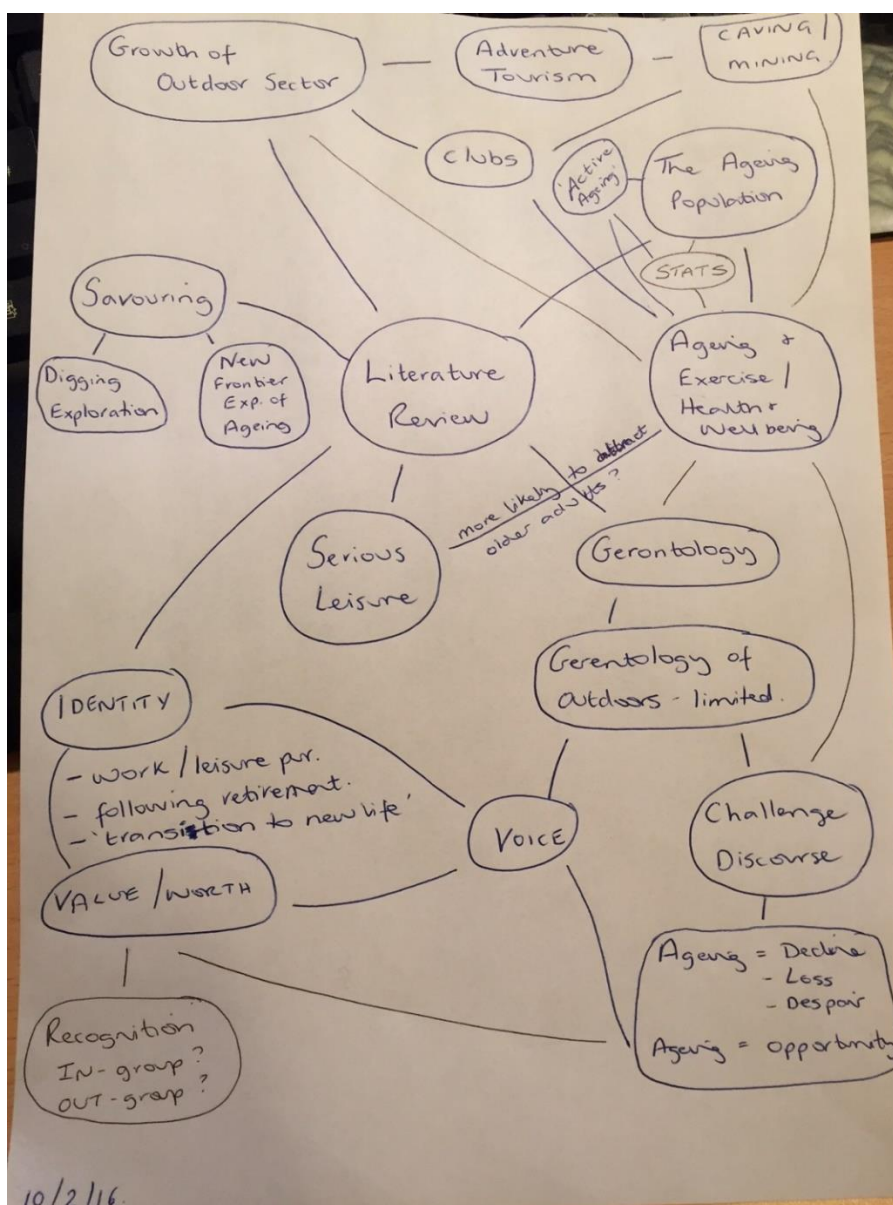 Growth of
Outdoor Sector
Adventure
Tourism
CAVING /
MINING
Clubs
'Active
Ageing'
The Ageing
Population
STATS
Savouring
Digging
Exploration
New
Frontier
Exp. of
Ageing
Literature
Review
Ageing +
Exercise /
Health +
Wellbeing
more likely to attract
older adults?
Serious
Leisure
Gerontology
Gerentology of
Outdoors - limited.
IDENTITY
- work / leisure pur.
- following retirement.
- 'transition to new life'
VOICE
Challenge
Discourse
VALUE / WORTH
Ageing = Decline
- Loss
- Despair
Ageing = opportunity
Recognition
IN-group?
OUT-group?
10/2/16.